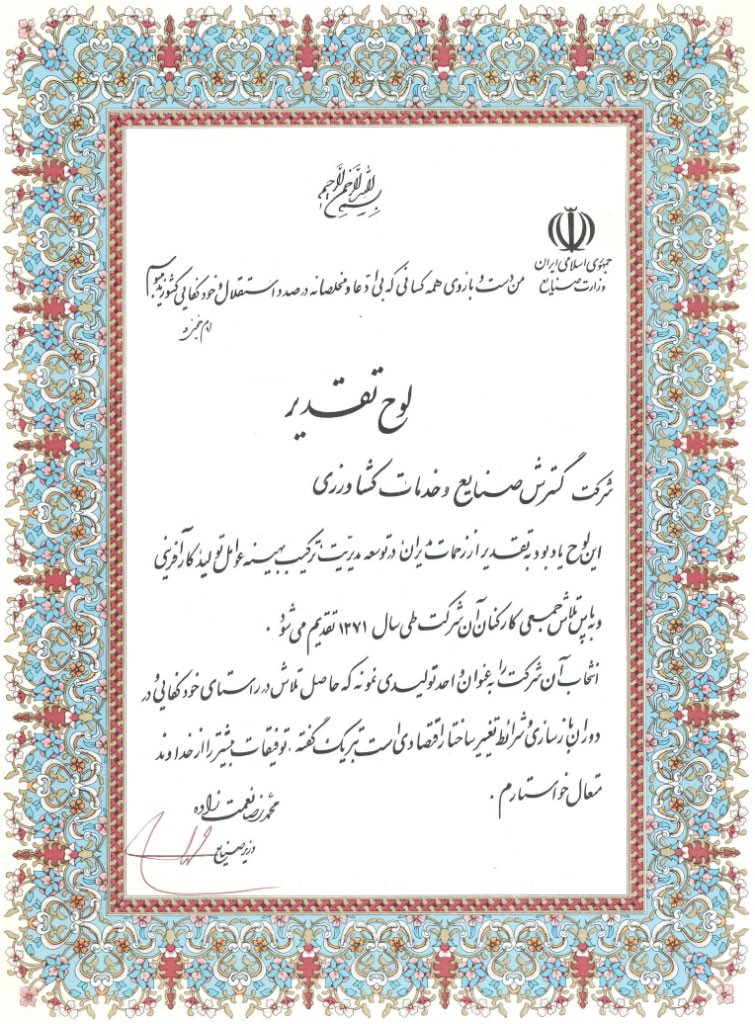 بسم الله الرحمن الرحیم
جمهوری اسلامی ایران
وزارت صنایع
من دست و بازوی همه کسانی که بی ادعا و مخلصانه در صدد استقلال و خودکفایی کشورند میبوسم
امام خمینی ره
لوح تقدیر
شرکت گسترش صنایع و خدمات کشاورزی
این لوح یادبود به تقدیر از زحمات مدیران در توسعه مدیریت، ترکیب بهینه عوامل تولید، کارآفرینی
و به پاس تلاش جمعی کارکنان آن شرکت طی سال ۱۳۷۱ تقدیم می شود.
انتخاب آن شرکت را به عنوان واحد تولیدی نمونه که حاصل تلاش در راستای خودکفایی و در
دوران بازسازی و شرائط تغییر ساختار اقتصادی است تبریک گفته، توفیقات بیشتر را از خداوند
متعال خواستارم.
محمدرضا نعمت زاده
وزیر صنایع